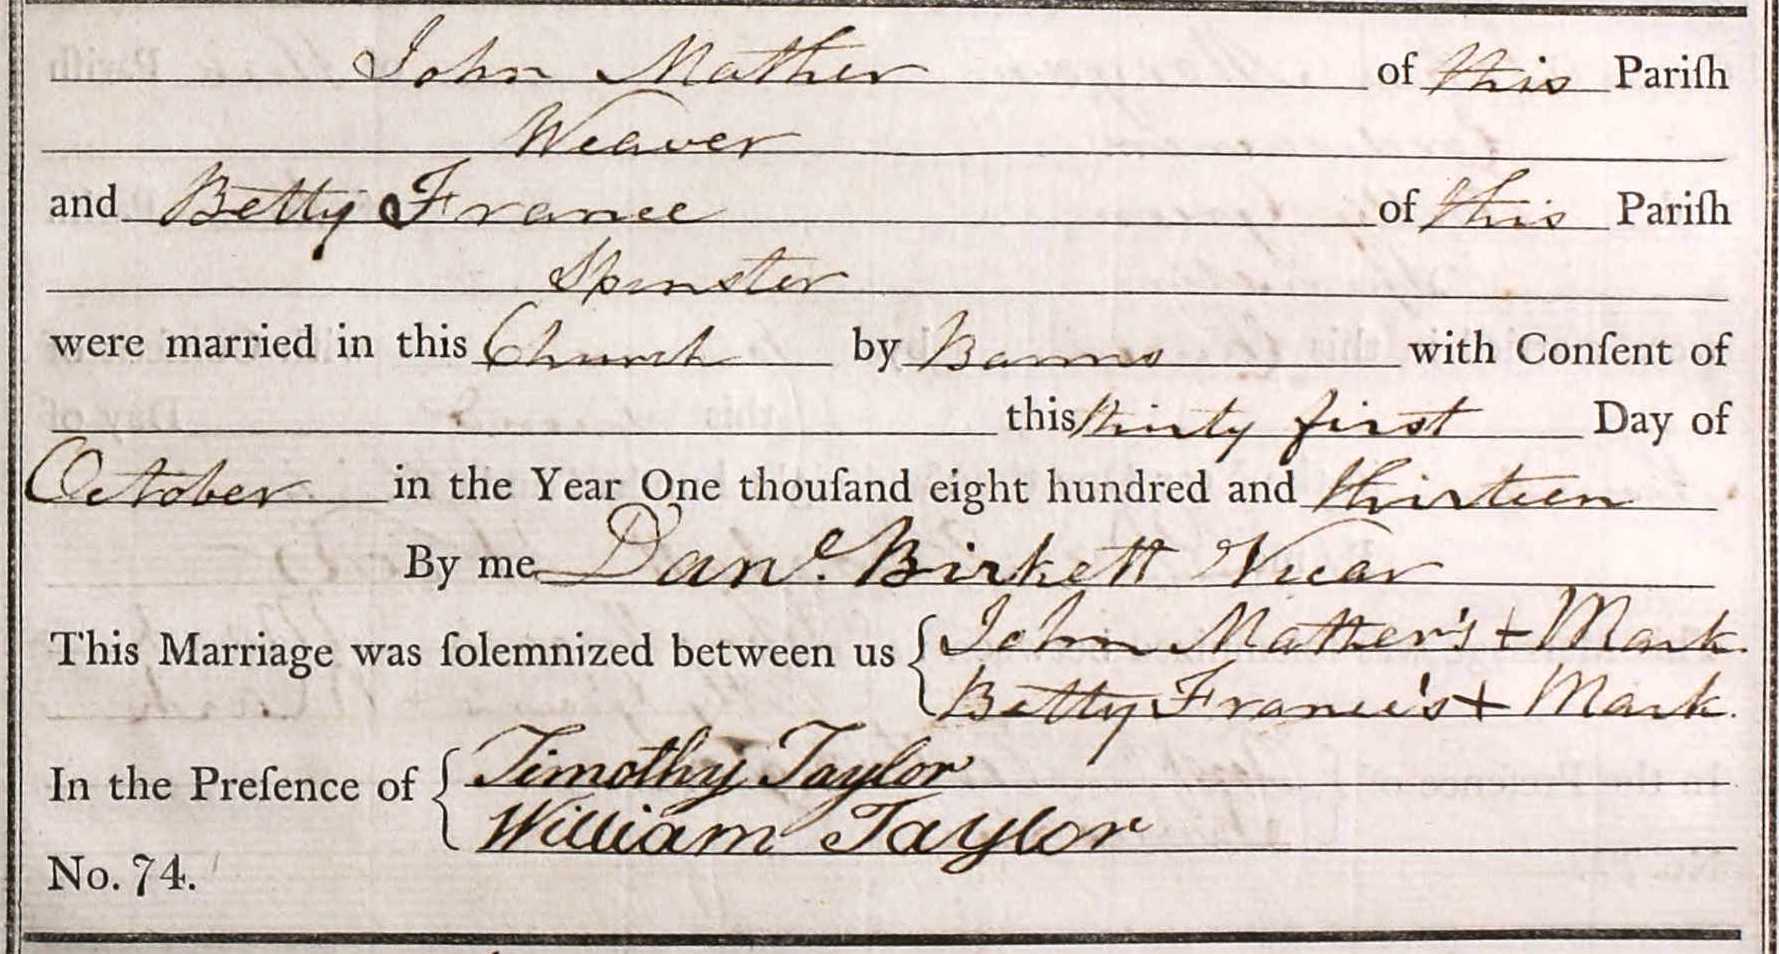 John Mather of this Pariſh
Weaver
and Betty France of this Pariſh
Spinster
were married in this Church by Banns with Conſent of
this thirty first Day of
October in the Year One thouſand eight hundred and thirteen
By me Danl. Birkett Vicar
This Marriage was ſolemnized between us { John Mather's + Mark.
Betty France's + Mark.
In the Preſence of { Timothy Taylor
William Taylor
No. 74.